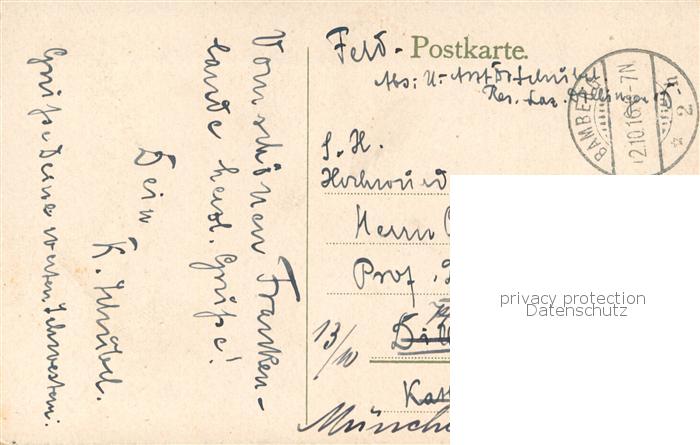 Feld- Postkarte.
Abs: U-Arzt Dr Schübel.
Res. Laz.
BAMBERG
2.10.16 -7N
2
S. H.
Hochwürd
Herrn
Prof.
13/10
München
Vom schönen Franken-
lande herzl. Grüße!
Dein
K. Schübel.
Grüße Deine werten Schwestern.
privacy protection
Datenschutz